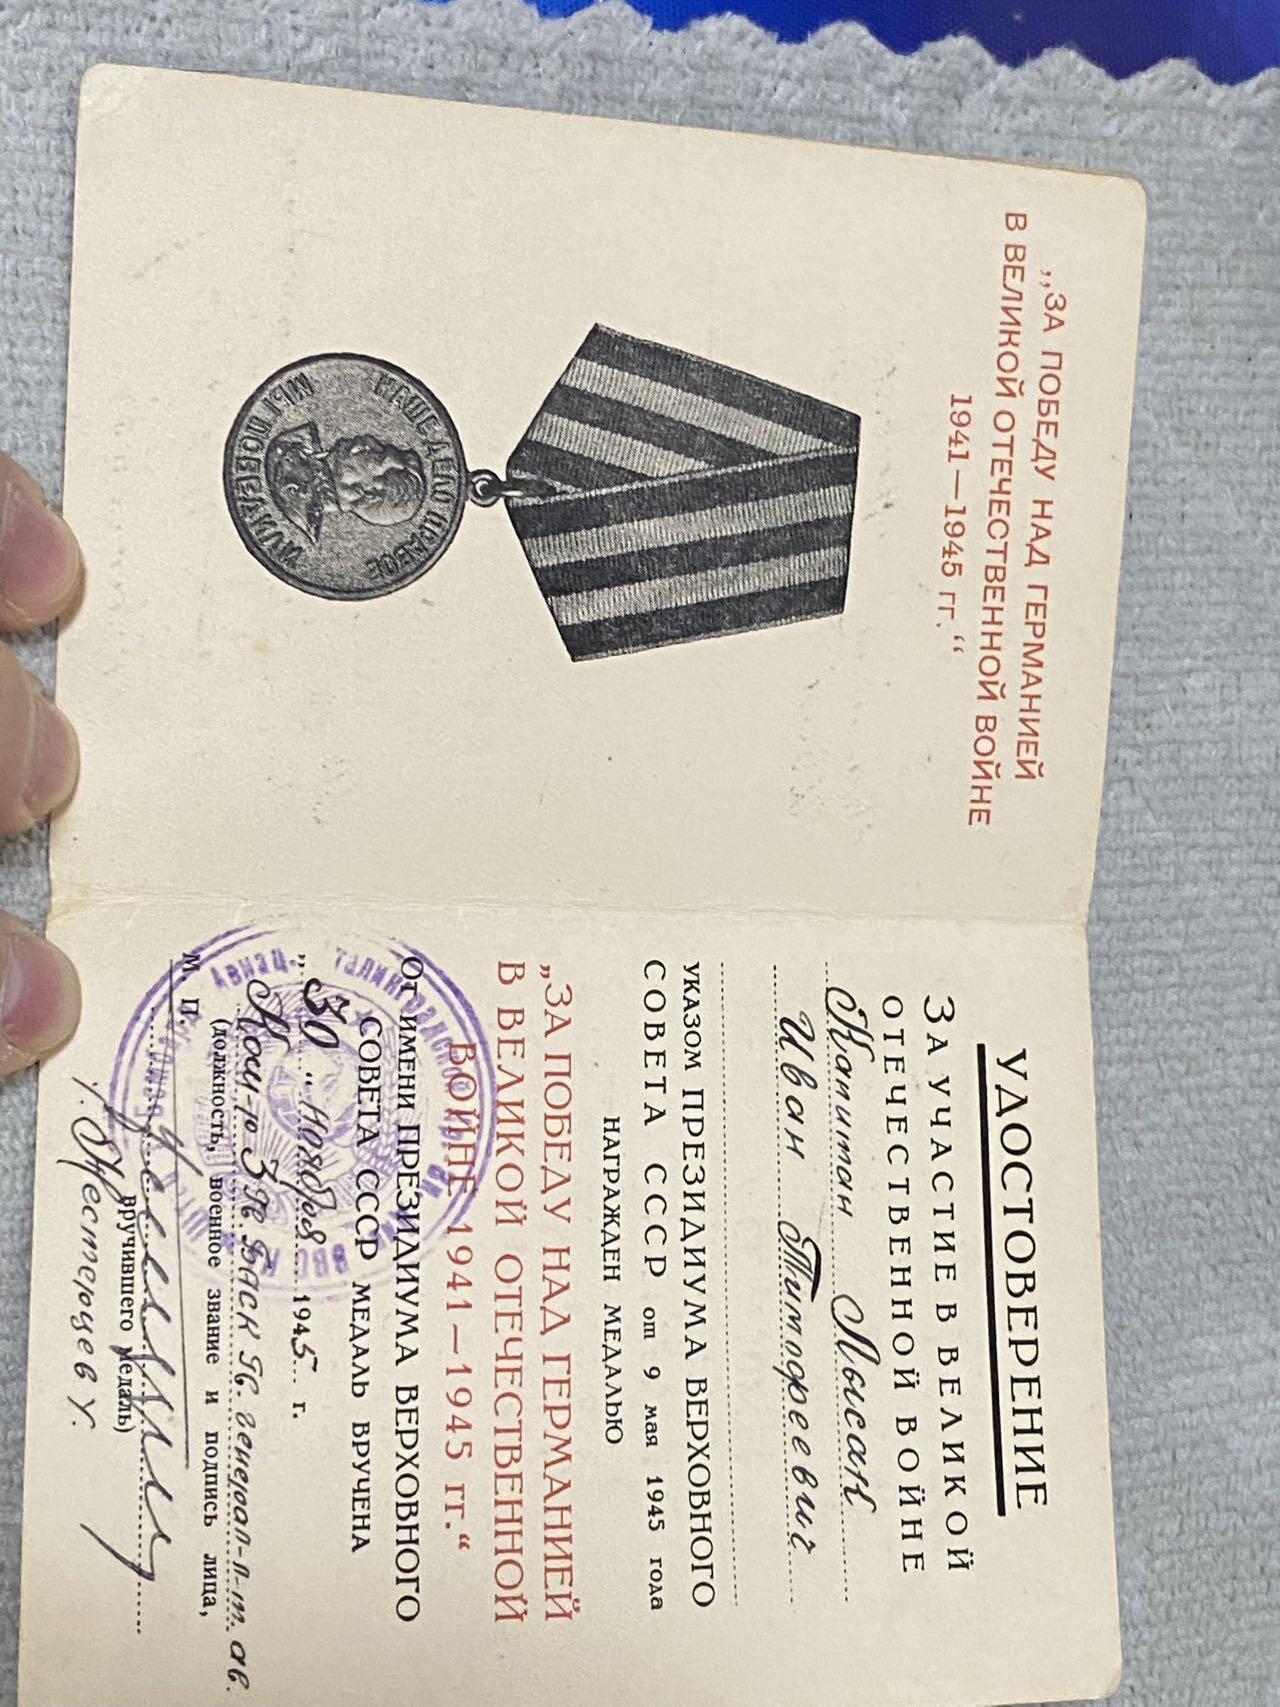 „ЗА ПОБЕДУ НАД ГЕРМАНИЕЙ
В ВЕЛИКОЙ ОТЕЧЕСТВЕННОЙ ВОЙНЕ
1941—1945 гг.“
НАШЕ ДЕЛО ПРАВОЕ
МЫ ПОБЕДИЛИ
УДОСТОВЕРЕНИЕ
ЗА УЧАСТИЕ В ВЕЛИКОЙ
ОТЕЧЕСТВЕННОЙ ВОЙНЕ
Капитан Лысак
Иван Тимофеевич
УКАЗОМ ПРЕЗИДИУМА ВЕРХОВНОГО
СОВЕТА СССР от 9 мая 1945 года
НАГРАЖДЕН МЕДАЛЬЮ
„ЗА ПОБЕДУ НАД ГЕРМАНИЕЙ
В ВЕЛИКОЙ ОТЕЧЕСТВЕННОЙ
ВОЙНЕ 1941—1945 гг.“
От имени ПРЕЗИДИУМА ВЕРХОВНОГО
СОВЕТА СССР МЕДАЛЬ ВРУЧЕНА
„30“ ноября 1945 г.
Ком-р 3 Гв. БАСК Гв. генерал-л-т. ав.
М. П. (должность, военное звание и подпись лица,
вручившего медаль)
/. Нестерцев У.